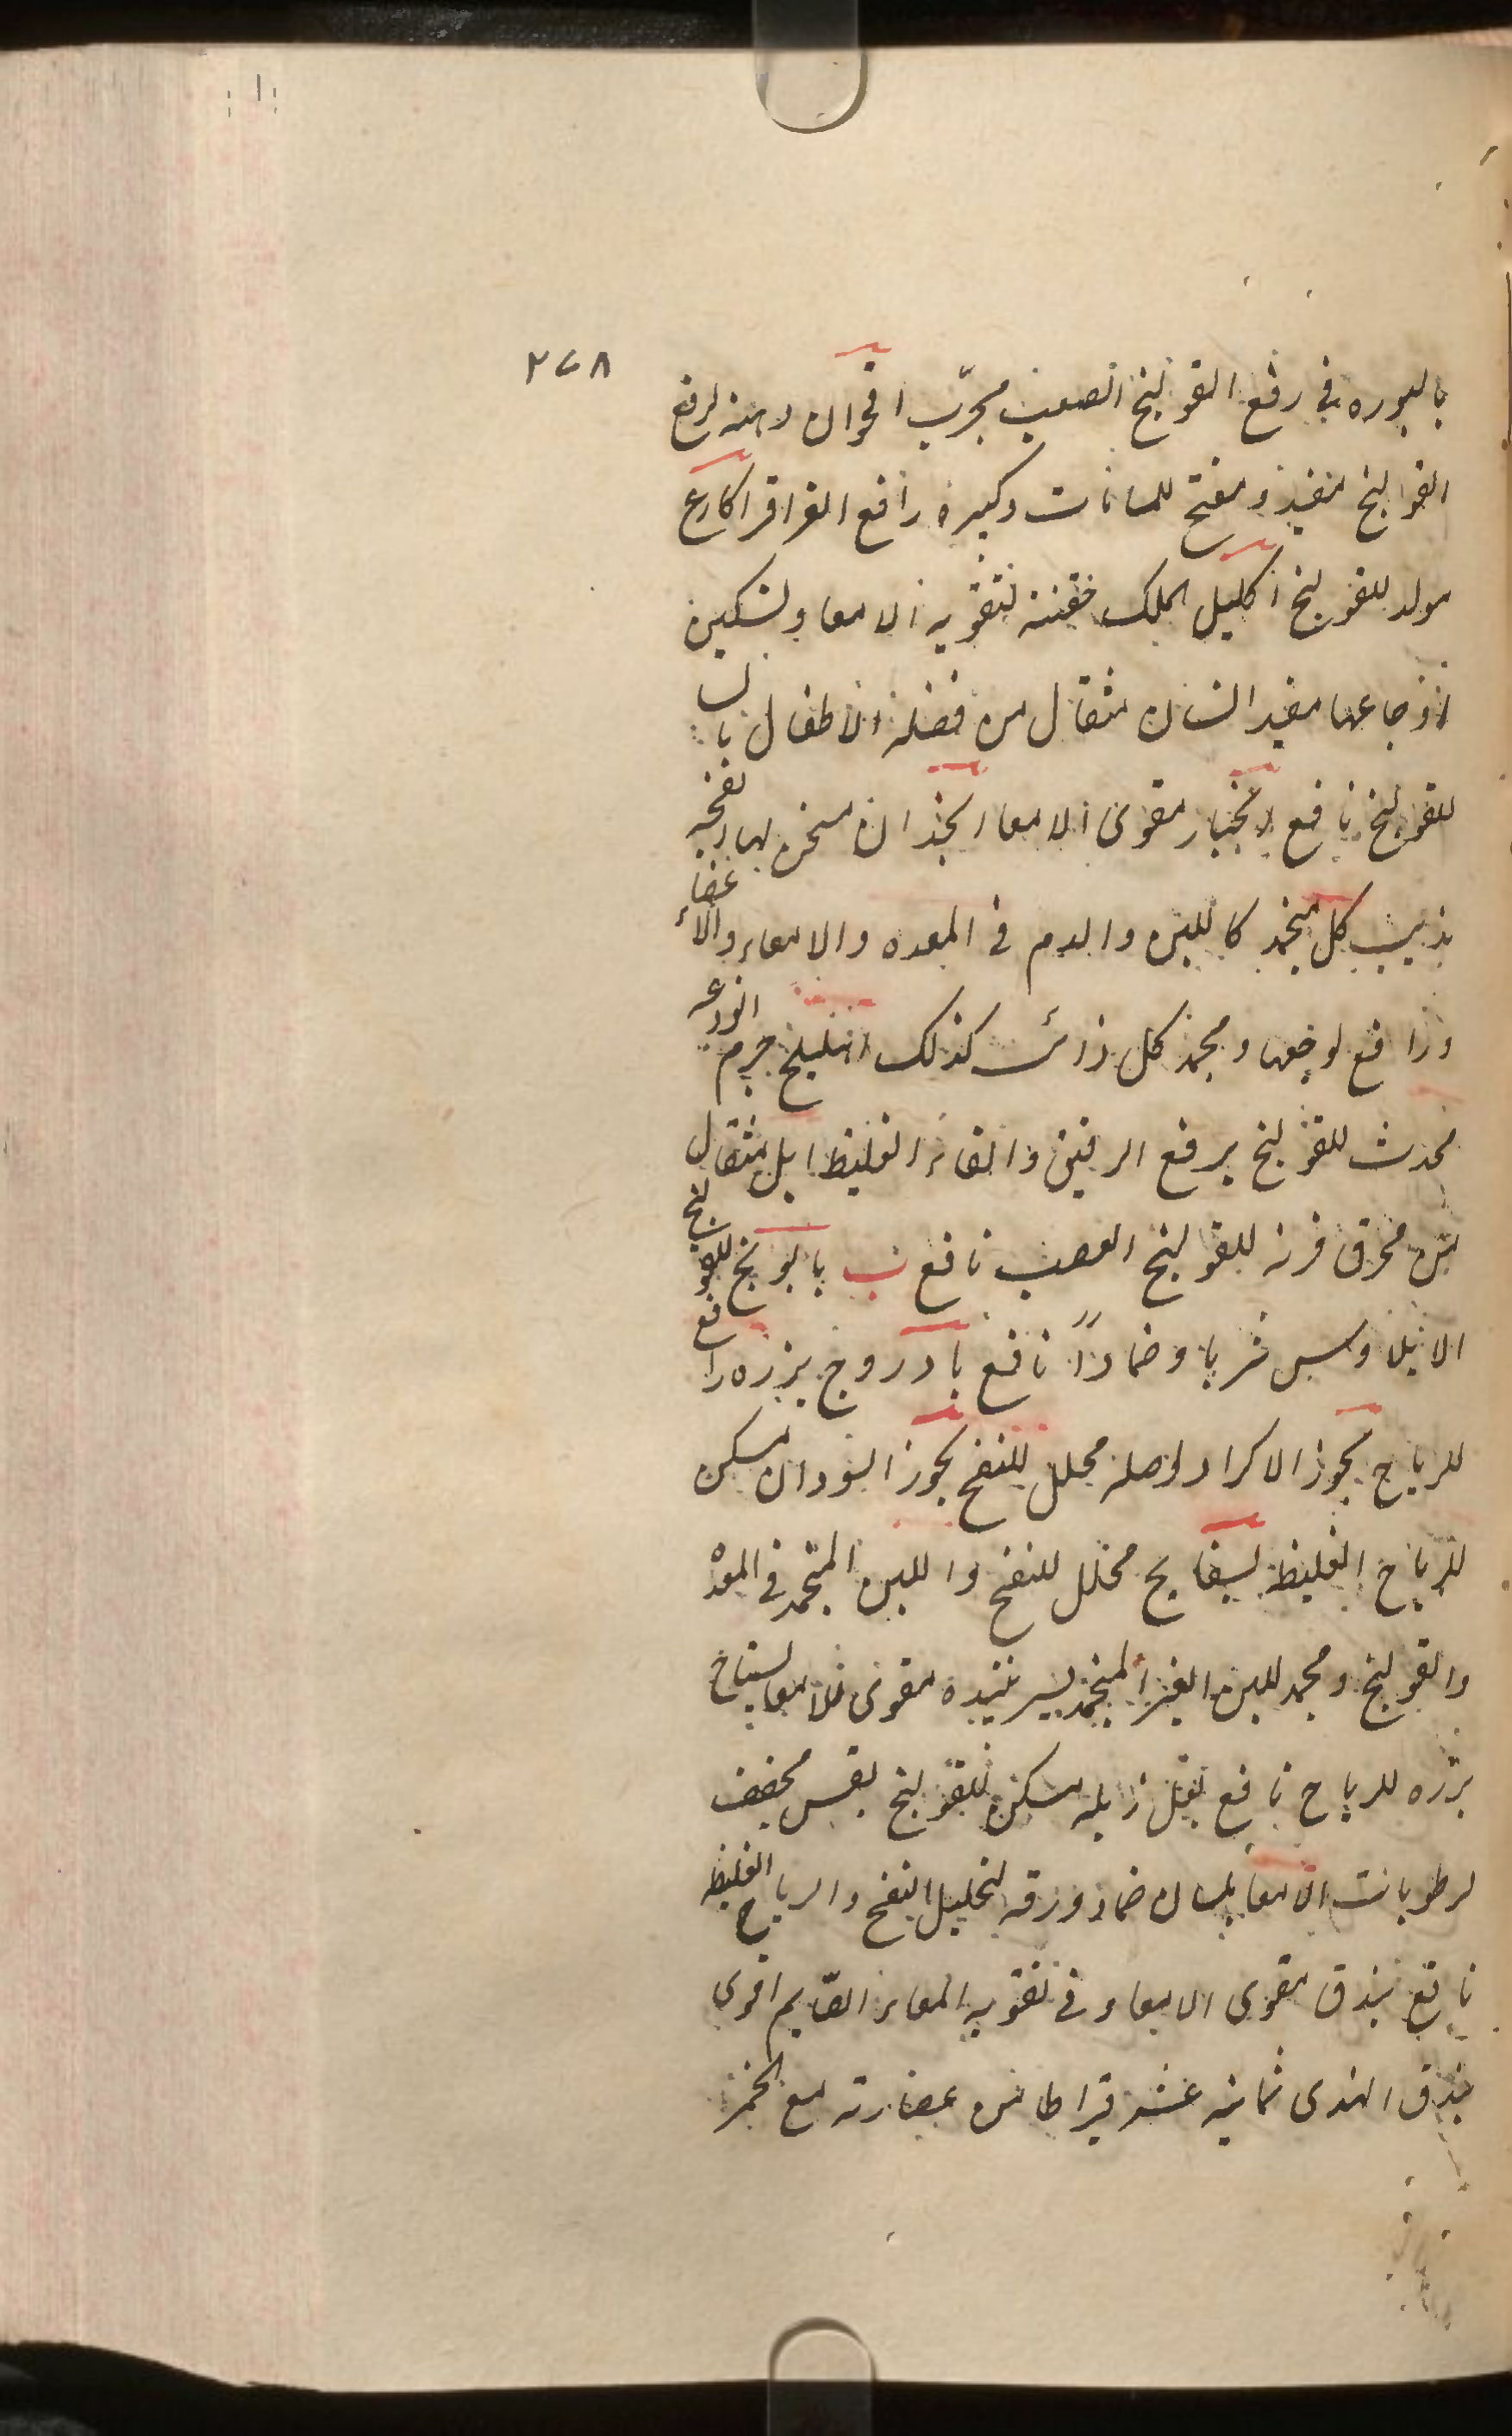 ٢٧٨
بالبوره فی رفع القولنج الصعب مجرّب اقحوان دهنه لرفع
القولنج مفید و مفتح للمانات وکبره رافع القراقر اکارع
مولد للقولنج اکلیل الملک حقنة لتقویه الامعا ولتسکین
اوجاعها مفید انسان مثقال من فضلة الاطفال بالسا
للقولنج نافع انجبار مقوی الامعا انجذان مسخن لها انفحه
یذیب کل منجمد کاللبن والدم فی المعده والامعاء والأعضاء
ورافع لوجعها ومجمد کل ذائب کذلک اهلیلج جرم النوعه
محدث للقولنج یرفع الرقیق والغلیظ ایل مثقال
من محرق قرنه للقولنج الصعب نافع ب بابونج للقولنج
الایلاوس شربا وضماداً نافع بادروج بزره رافع
للریاح بخور الاکراد اصله محلل للنفخ بخور السودان مسکن
للریاح الغلیظ بسفایج محلل للنفخ واللبن المنجمد فی المعدة
والقولنج ومجمد للبن الغیر المنجمد مقوی للامعا
بزره للریاح نافع بقل زبله مسکن للقولنج بقس مجفف
لرطوبات الامعا بلسان ضماد ورقه لتحلیل النفخ والریاح الغلیظ
نافع بندق مقوی الامعاء و فی تقویه المعاء الصایم اقوی
بندق الهندی ثمانیه عشر قیراطا من عصارته مع الخمر